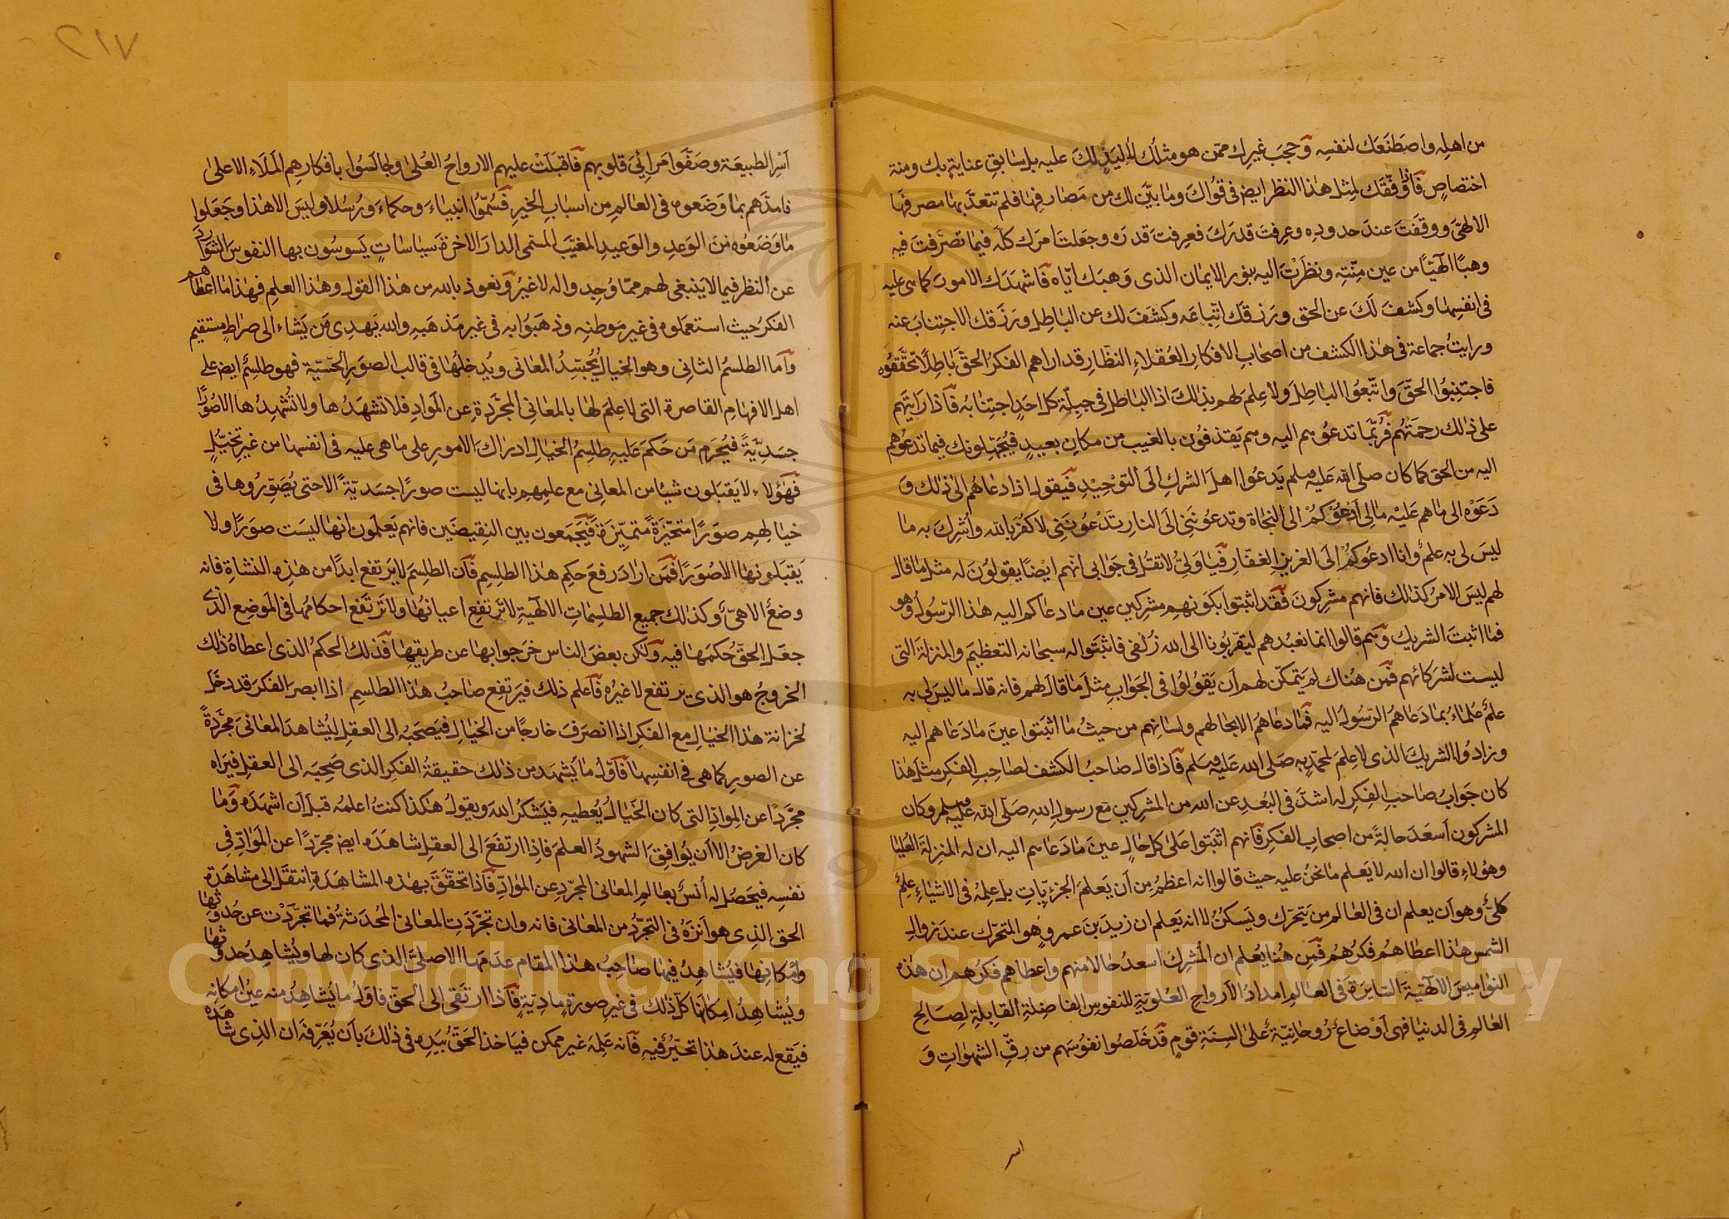 من اهله واصطنعك لنفسه وحجب غيرك ممن هو مثلك عليه بل لسابق عناية بك ومنة
اختصاص فاذا وفقك لمثل هذا النظر ايض في قواك وما بين لك من مصارفها فلم تتعد بها مصرفها
الالهى ووقفت عند حدوده وعرفت قدرك فعرفت قدره وجعلت امرك كله فيما تصرفت فيه
وهبا الهيا من عين منته ونظرت اليه بنور الايمان الذى وهبك اياه فاشهدك الامور كما هى عليه
في انفسها وكشف لك عن الحق ورزقك اتباعه وكشف لك عن الباطل ورزقك الاجتناب عنه
ورايت جماعة في هذا الكشف من اصحاب الافكار العقلاء النظار قد اراهم الفكر الحق باطلا تحققوه
فاجتنبوا الحق واتبعوا الباطل ولا علم لهم بذلك اذ الباطل في جبلة كل احد اجتنابه فاذا رايتهم
على ذلك رحمتهم فربما تدعوهم اليه وهم يقذفون بالغيب من مكان بعيد فيجهلونك فيما تدعوهم
اليه من الحق كما كان صلى الله عليه وسلم يدعوا اهل الشرك الى التوحيد فيقول اذا دعاهم الى ذلك و
دعوه الى ما هم عليه مالى ادعوكم الى النجاة وتدعوننى الى النار تدعوننى لاكفر بالله واشرك به ما
ليس لى به علم وانا ادعوكم الى العزيز الغفار فيا ولى لا تقل في جوابى انهم ايضا يقولون له مثل ما قال
لهم ليس الامر كذلك فانهم مشركون فقد اثبتوا بكونهم مشركين عين ما دعاكم اليه هذا الرسول وهو
فما اثبت الشريك وهم قالوا انما نعبدهم ليقربونا الى الله زلفى فاثبتوا له سبحانه التعظيم والمنزلة التى
ليست لشركائهم فمن هناك لم يتمكن لهم ان يقولوا في الجواب مثل ما قال لهم فانه قال ما ليس لى به
علم علماء بما دعاهم الرسول اليه فما دعاهم الا بحالهم ولسانهم من حيث ما اثبتوا عين ما دعاهم اليه
وزادوا الشريك الذى لا علم لمحمد به صلى الله عليه وسلم فاذا قال صاحب الكشف لصاحب الفكر مثل هذا
كان جواب صاحب الفكر له اشد في البعد عن الله من المشركين مع رسول الله صلى الله عليه وسلم وكان
المشركون اسعد حالة من اصحاب الفكر فانهم اثبتوا على كل حال عين ما دعاهم اليه ان له المنزلة العليا
وهؤلاء قالوا ان الله لا يعلم ما نحن عليه حيث قالوا انه اعظم من ان يعلم الجزئيات بل علمه في الاشياء علم
كلى وهو ان يعلم ان في العالم من يتحرك ويسكن لا انه يعلم ان زيد بن عمرو هو المتحرك عند زوال
الشمس هذا اعطاهم فكرهم فمن هنا يعلم ان المشرك اسعد حالا منهم واعطاهم فكرهم ان هذه
النواميس الالهية السائرة في العالم امداد الارواح العلوية للنفوس الفاضلة القابلة لصالح
العالم في الدنيا فهى اوضاع روحانية على السنة قوم قد خلصوا نفوسهم من رق الشهوات و
اسر
اسر الطبيعة وصفوا مرائى قلوبهم فاقبلت عليهم الارواح العلى وجالسوا بافكارهم الملاء الاعلى
فامدهم بما وضعوه في العالم من اسباب الخير فسموا انبياء وحكماء ورسلا وليس الا هذا وجعلوا
ما وضعوه من الوعد والوعيد المغيب المسمى الدار الاخرة سياسات يسوسون بها النفوس الشواردة
عن النظر فيما لا ينبغى لهم مما وجد واله لا غير ونعوذ بالله من هذا القول وهذا العلم فهذا ما اعطاهم
الفكر حيث استعملوه في غير موطنه وذهبوا به في غير مذهبه والله يهدى من يشاء الى صراط مستقيم
واما الطلسم الثانى وهو الخيال يجسد المعانى ويدخلها في قالب الصور الحسية فهو طلسم ايض على
اهل الافهام القاصرة التى لا علم لها بالمعانى المجردة عن المواد فلا تشهدها ولا تشهدها الا صورا
جسدية فيحرم من حكم عليه طلسم الخيال ادراك الامور على ما هى عليه في انفسها من غير تخيل
فهؤلاء لا يقبلون شيئا من المعانى مع علمهم بانها ليست صورا جسدية الا حتى يصوروها في
خيالهم صورا متحيزة متميزة فيجمعون بين النقيضين فانهم يعلمون انها ليست صورا ولا
يقبلونها الا صورا فمن اراد رفع حكم هذا الطلسم فان الطلسم لا يرتفع ابدا من هذه النشاة فانه
وضع الاهى وكذلك جميع الطلسمات الالهية لا ترتفع اعيانها ولا ترتفع احكامها في الموضع الذى
جعل الحق حكمها فيه ولكن بعض الناس خرجوا بها عن طريقها فذلك الحكم الذى اعطاه ذلك
الخروج هو الذى يرتفع لا غيره فاعلم ذلك فيرتفع صاحب هذا الطلسم اذا ابصر الفكر قد دخل
لخزانة هذا الخيال مع الفكر اذا انصرف خارجا من الخيال فيصحبه الى العقل ليشاهد المعانى مجردة
عن الصور كما هى في انفسها فاول ما يشهد من ذلك حقيقة الفكر الذى صحبه الى العقل فيراه
مجردا عن المواد التى كان الخيال يعطيه فيشكر الله ويقول هكذا كنت اعلمه قبل ان اشهده وما
كان الغرض الا ان يوافق الشهود العلم فاذا ارتفع الى العقل شاهده ايض مجردا عن المواد في
نفسه فيحصل له انس بعالم المعانى المجرد عن المواد فاذا تحقق بهذه المشاهدة انتقل الى مشاهدة
الحق الذى هو انزه في التجرد من المعانى فانه وان تجردت المعانى المحدثة فما تجردت عن حدوثها
وامكانها فيشاهد فيها صاحب هذا المقام عدمها الاصلى الذى كان لها ويشاهد حدوثها
ويشاهد امكانها كل ذلك في غير صورة مادية فاذا ارتقى الى الحق فاول ما يشاهد منه عين امكانه
فيقع له عند هذا تحير فيه فانه علمه غير ممكن فياخذ الحق بيده في ذلك بان يعرفه ان الذى شاهده
Copyright © King Saud University